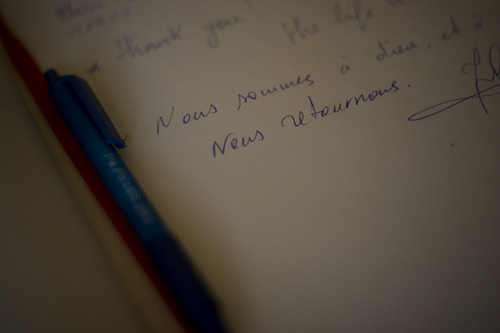 Thank you! The life
Nous sommes à dieu, et à
Nous retournons.